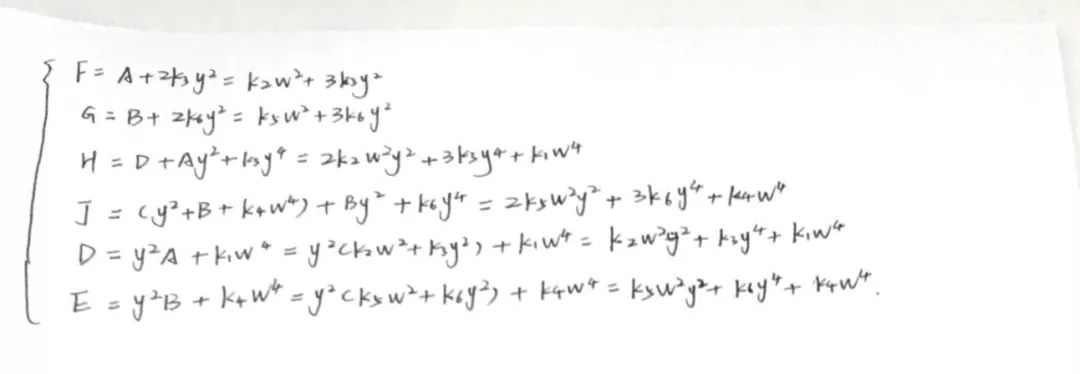 F = A + 2k₃y² = k₂w² + 3k₃y²
G = B + 2k₆y² = k₅w² + 3k₆y²
H = D + Ay² + k₃y⁴ = 2k₂w²y² + 3k₃y⁴ + k₁w⁴
J = (y²+B + k₄w⁴) + By² + k₆y⁴ = 2k₅w²y² + 3k₆y⁴ + k₄w⁴
D = y²A + k₁w⁴ = y²(k₂w² + k₃y²) + k₁w⁴ = k₂w²y² + k₃y⁴ + k₁w⁴
E = y²B + k₄w⁴ = y²(k₅w² + k₆y²) + k₄w⁴ = k₅w²y² + k₆y⁴ + k₄w⁴.